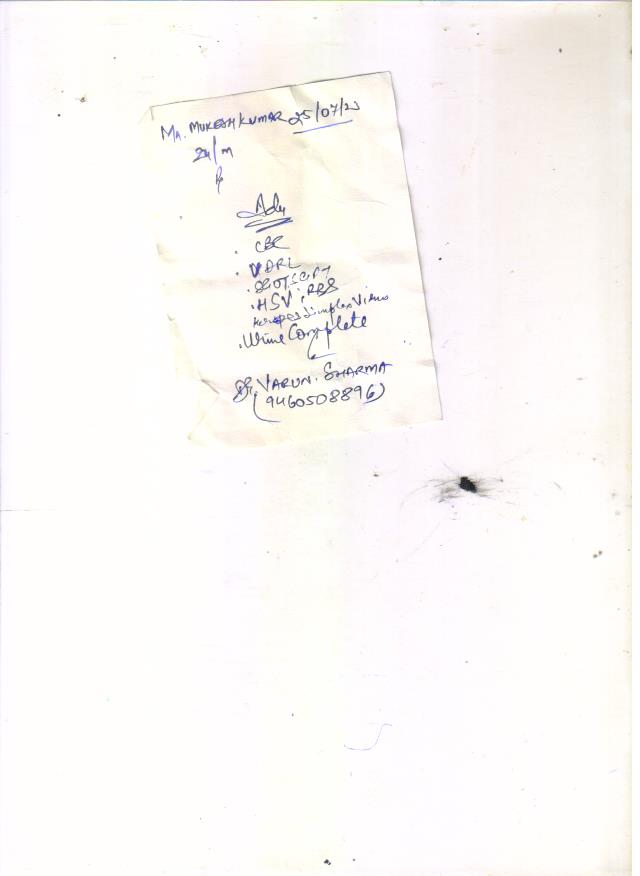 Mr. MUKESH KUMAR 25/07/23
24/m
Rx
Adv
. CBC
. VDRL
. SGOT SGPT
. HSV ; RBS
Herpes Simplex Virus
. Urine Complete
Dr. VARUN. SHARMA
(9460508896)